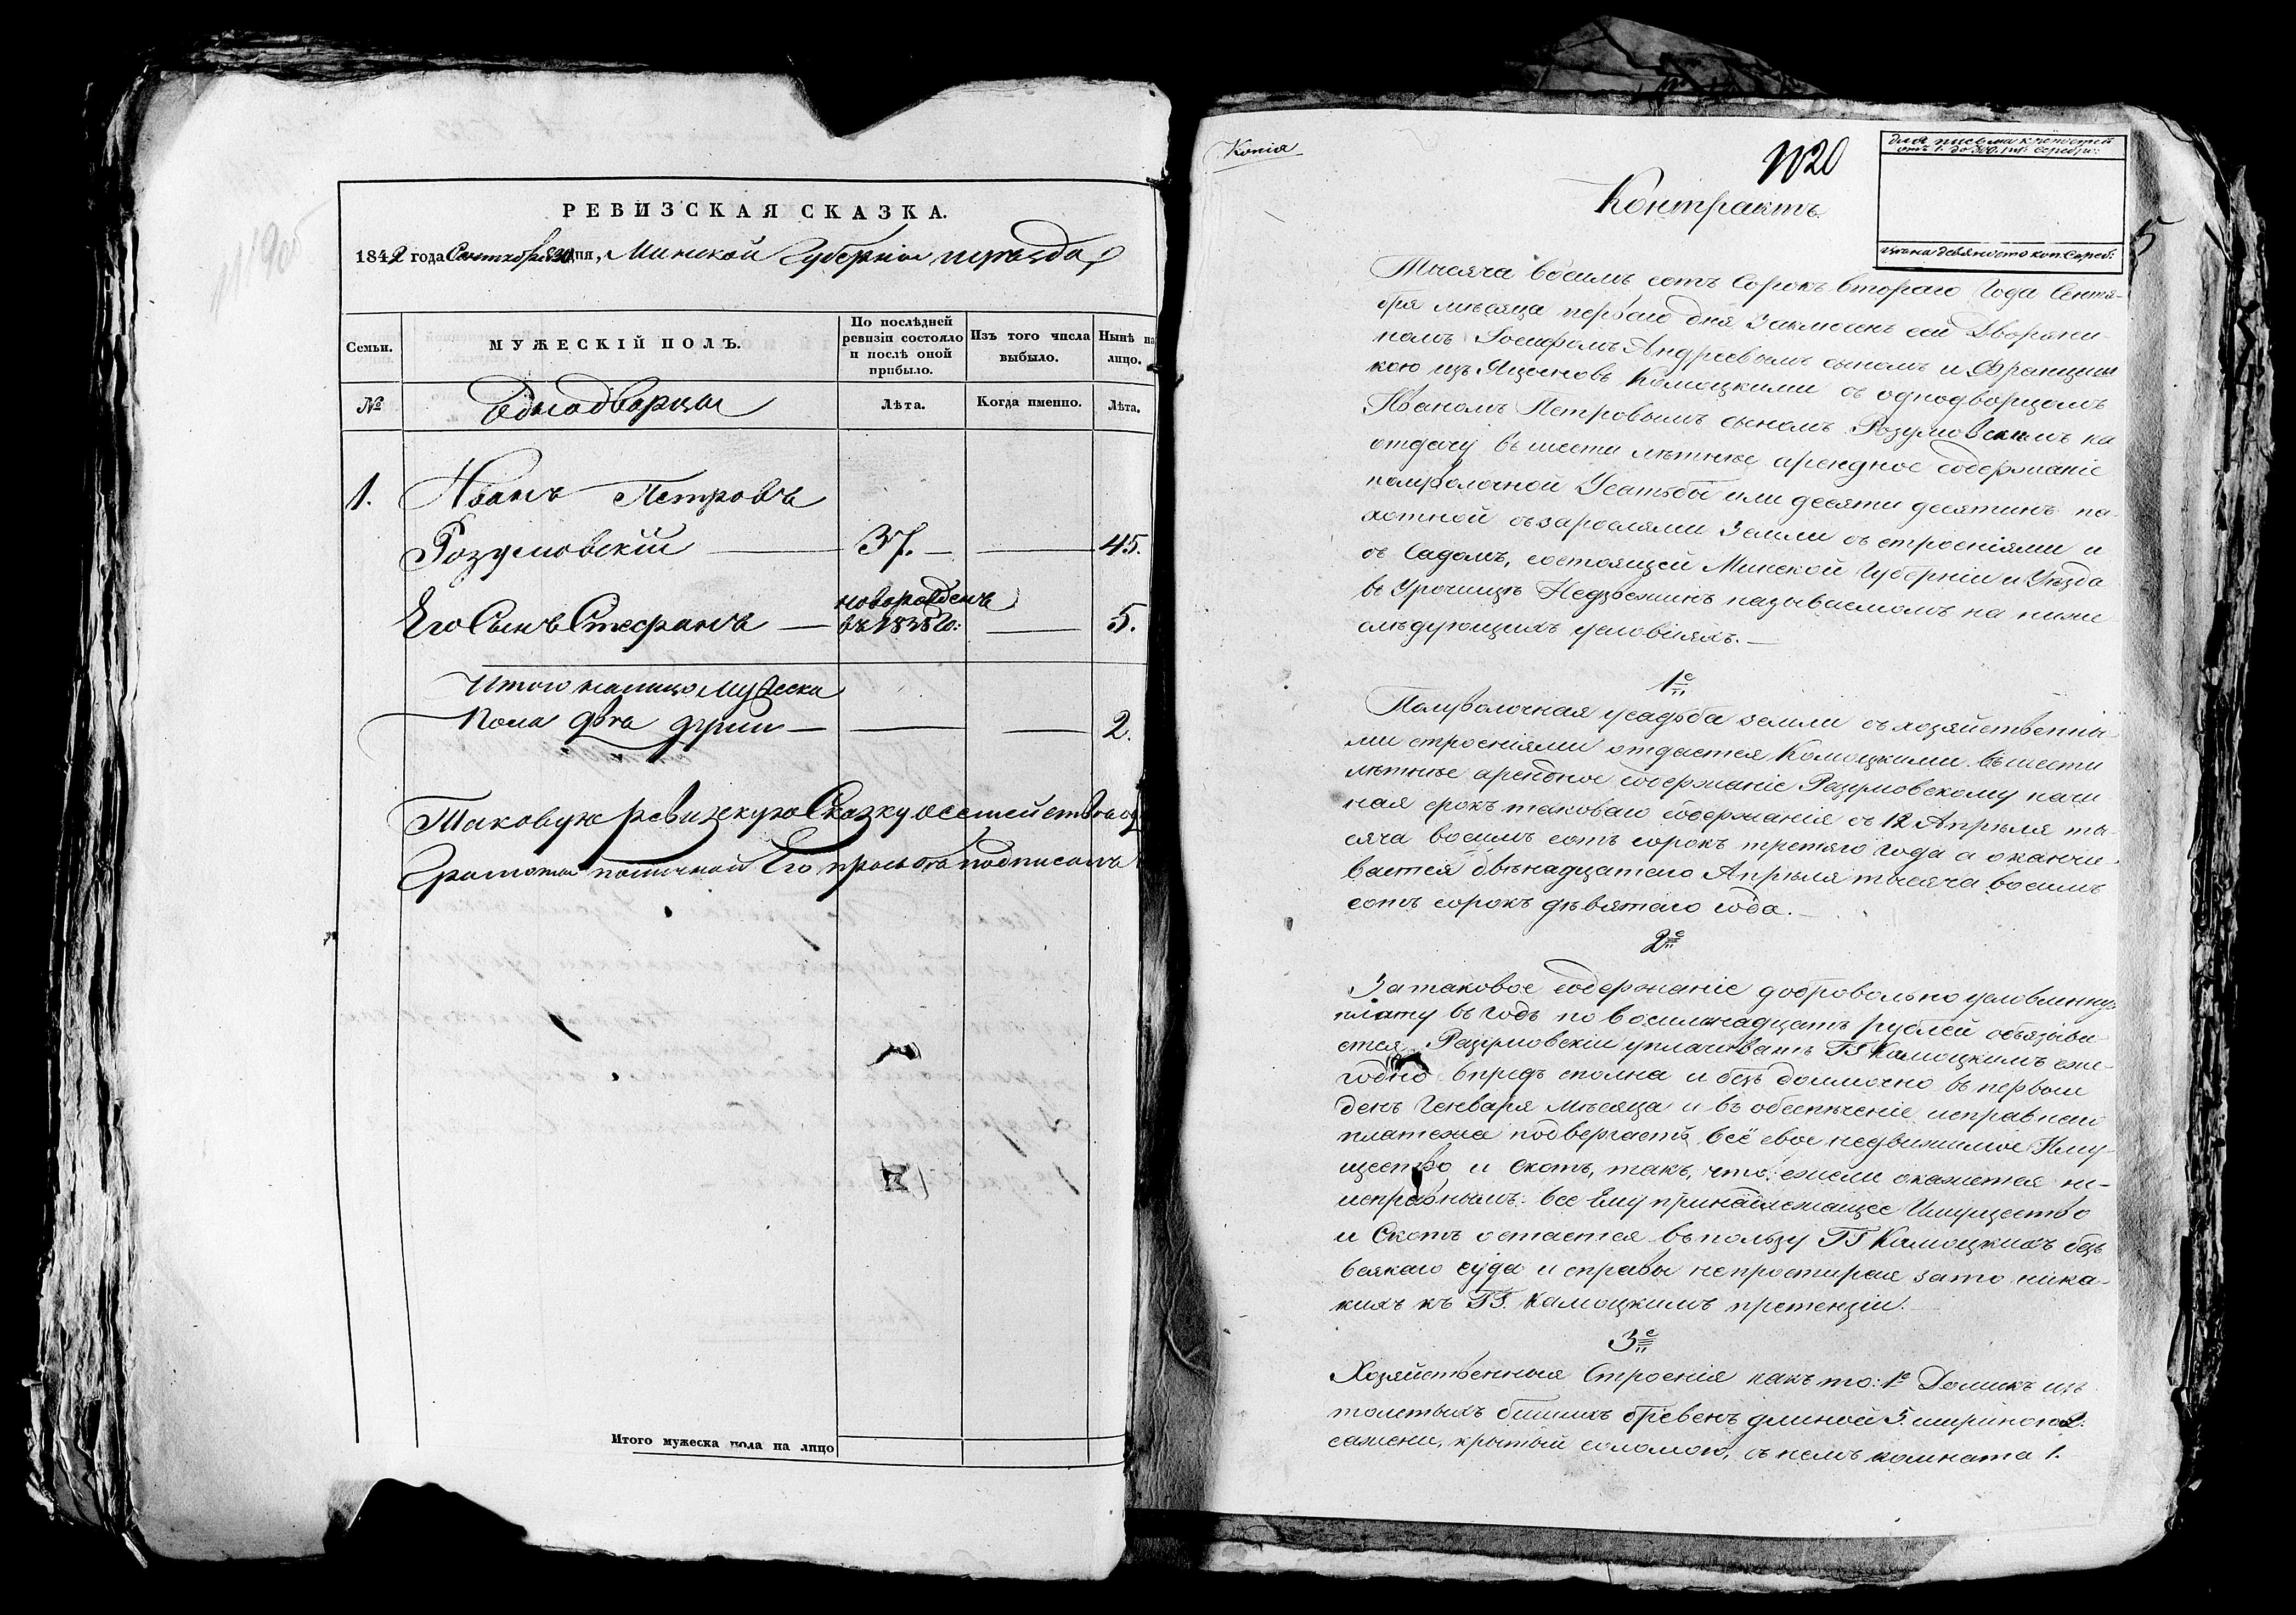 РЕВИЗСКАЯ СКАЗКА.
1842 года Сентября дня, Минской Губерніи и уѣзда
Семьи.
МУЖЕСКІЙ ПОЛЪ.
По послѣдней ревизіи состояло и послѣ оной прибыло.
Изъ того числа выбыло.
Нынѣ на лицо.
№
Однодворцы
Лѣта.
Когда именно.
Лѣта.
1. Иванъ Петровъ
Розумовскій 37. 45.
новорожденъ
Его Сынъ Стефанъ въ 1838 Го: 5.
Итого налицо Мужеска
Пола двѣ души 2.
Таковую ревизкую Сказку о семействѣ
Грамотѣ по личной Его прозьбѣ подписалъ
Итого мужеска пола на лицо
Копія
N20
для письма крѣпостей
отъ 1. до 300. ру: серебр:
цѣна девяносто коп. Сереб:
5
Контрактъ
Тысяча восемь сотъ Сорокъ втораго Года Сентя-
бря мѣсяца перваго дня Заключенъ сей Дворяни-
номъ Іосифомъ Андреевымъ сыномъ и Францишкою
изъ Яцыновъ Комоцкими съ однодворцомъ
Иваномъ Петровымъ сыномъ Розумовскимъ на
отдачу въ шести лѣтнѣе арендное содержаніе
полуволочной Усадьбы или десяти десятинъ па-
хотной съ зарослями Земли съ строеніями и
съ Садомъ, состоящей Минской Губерніи и Уѣзда
въ Урочищѣ называемомъ на ниже
слѣдующихъ условіяхъ.
1е
Полуволочная усадьба земли съ хозяйственны-
ми строеніями отдается Комоцкими въ шести
лѣтнѣе арендное содержаніе Разумовскому начи-
ная срокъ таковаго содержанія съ 12 Апрѣля ты-
сяча восемь сотъ сорокъ третяго года а оканчи-
вается двѣнадцатаго Апрѣля тысяча восемь
сотъ сорокъ дѣвятаго года.
2е
За таковое содержаніе добровольно условленную
плату въ годъ по восемнадцать рублей обязыва-
ется Разумовскій уплачивать ГГ Камоцкимъ еже-
годно впредъ сполна и безъ доимочно въ первый
день Генваря Мѣсяца и въ обезпѣченіе исправнаго
платежа подвергаетъ всё свое недвижимое Иму-
щество и Скотъ, такъ, что ежели окажется не-
исправнымъ: все Ему принадлежащее Имущество
и Скотъ остается въ пользу ГГ Камоцкихъ безъ
всякаго суда и справы непростирая зато ника-
кихъ къ ГГ. Камоцкимъ претензіи.
3е
Хозяйственныя Строенія какъ то: 1е Домикъ изъ
толстыхъ бревенъ длиной 5. шириною 2.
сажени, крытый соломою, въ немъ комната 1.